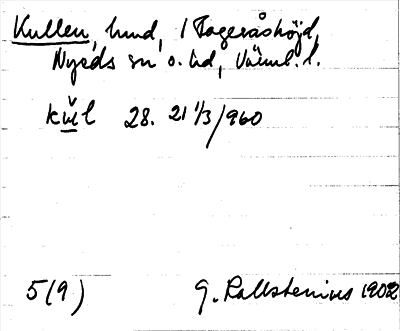 Kullen, hund, i Fageråshöjd,
Nyeds sn o. hd, Värml. l.
kŭl 28. 21 1/3/960
5(9) G. Kallstenius 1902